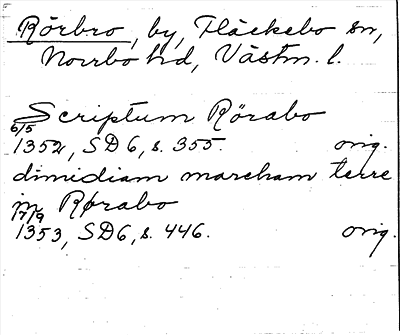 Rörbro, by, Fläckebo sn,
Norrbo hd, Västm. l.
Scriptum Rörabo
6/5
1352, SD6, s. 355. orig.
dimidiam marcham terre
in Rørabo
17/9
1353, SD6, s. 446. orig.